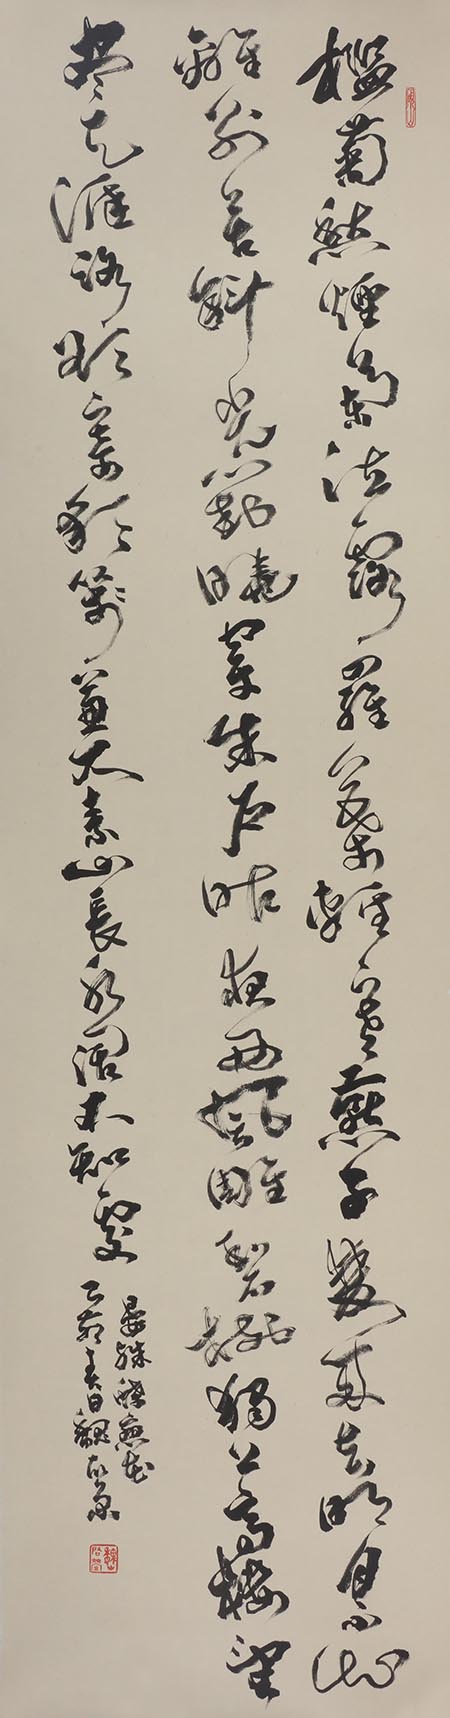 檻菊愁煙蘭泣露羅幕輕寒燕子雙去明月不
離別苦斜光到曉穿朱戶昨夜西風雕碧樹獨上高樓望
盡天涯路欲寄彩箋兼尺素山長水闊知處
晏殊蝶戀花
春日魏